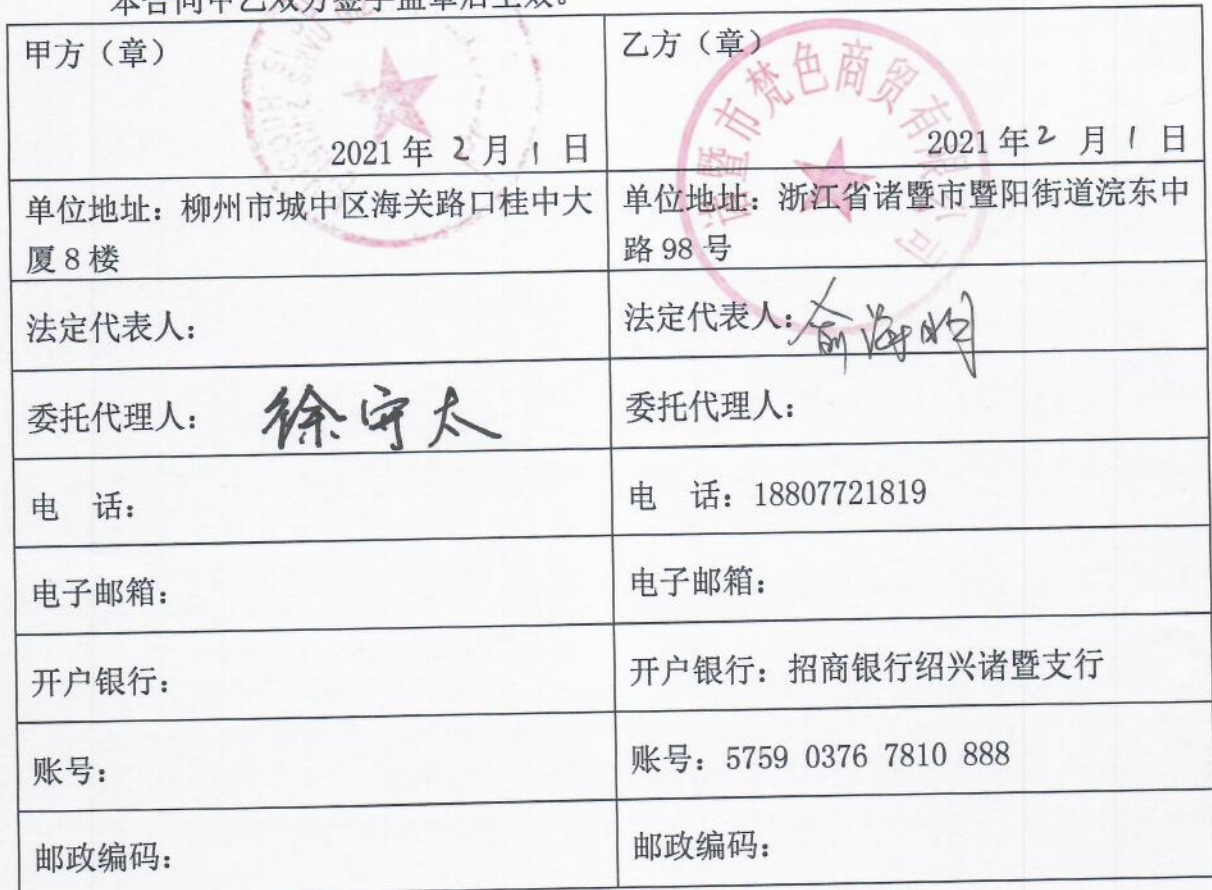 本合同甲乙双方签字盖章后生效。
甲方（章）
2021 年 2 月 1 日
乙方（章）
诸暨市梵色商贸有限公司
2021 年 2 月 1 日
单位地址：柳州市城中区海关路口桂中大
厦 8 楼
单位地址：浙江省诸暨市暨阳街道浣东中
路 98 号
法定代表人：
法定代表人：俞海明
委托代理人：徐守太
委托代理人：
电　话：
电　话：18807721819
电子邮箱：
电子邮箱：
开户银行：
开户银行：招商银行绍兴诸暨支行
账号：
账号：5759 0376 7810 888
邮政编码：
邮政编码：